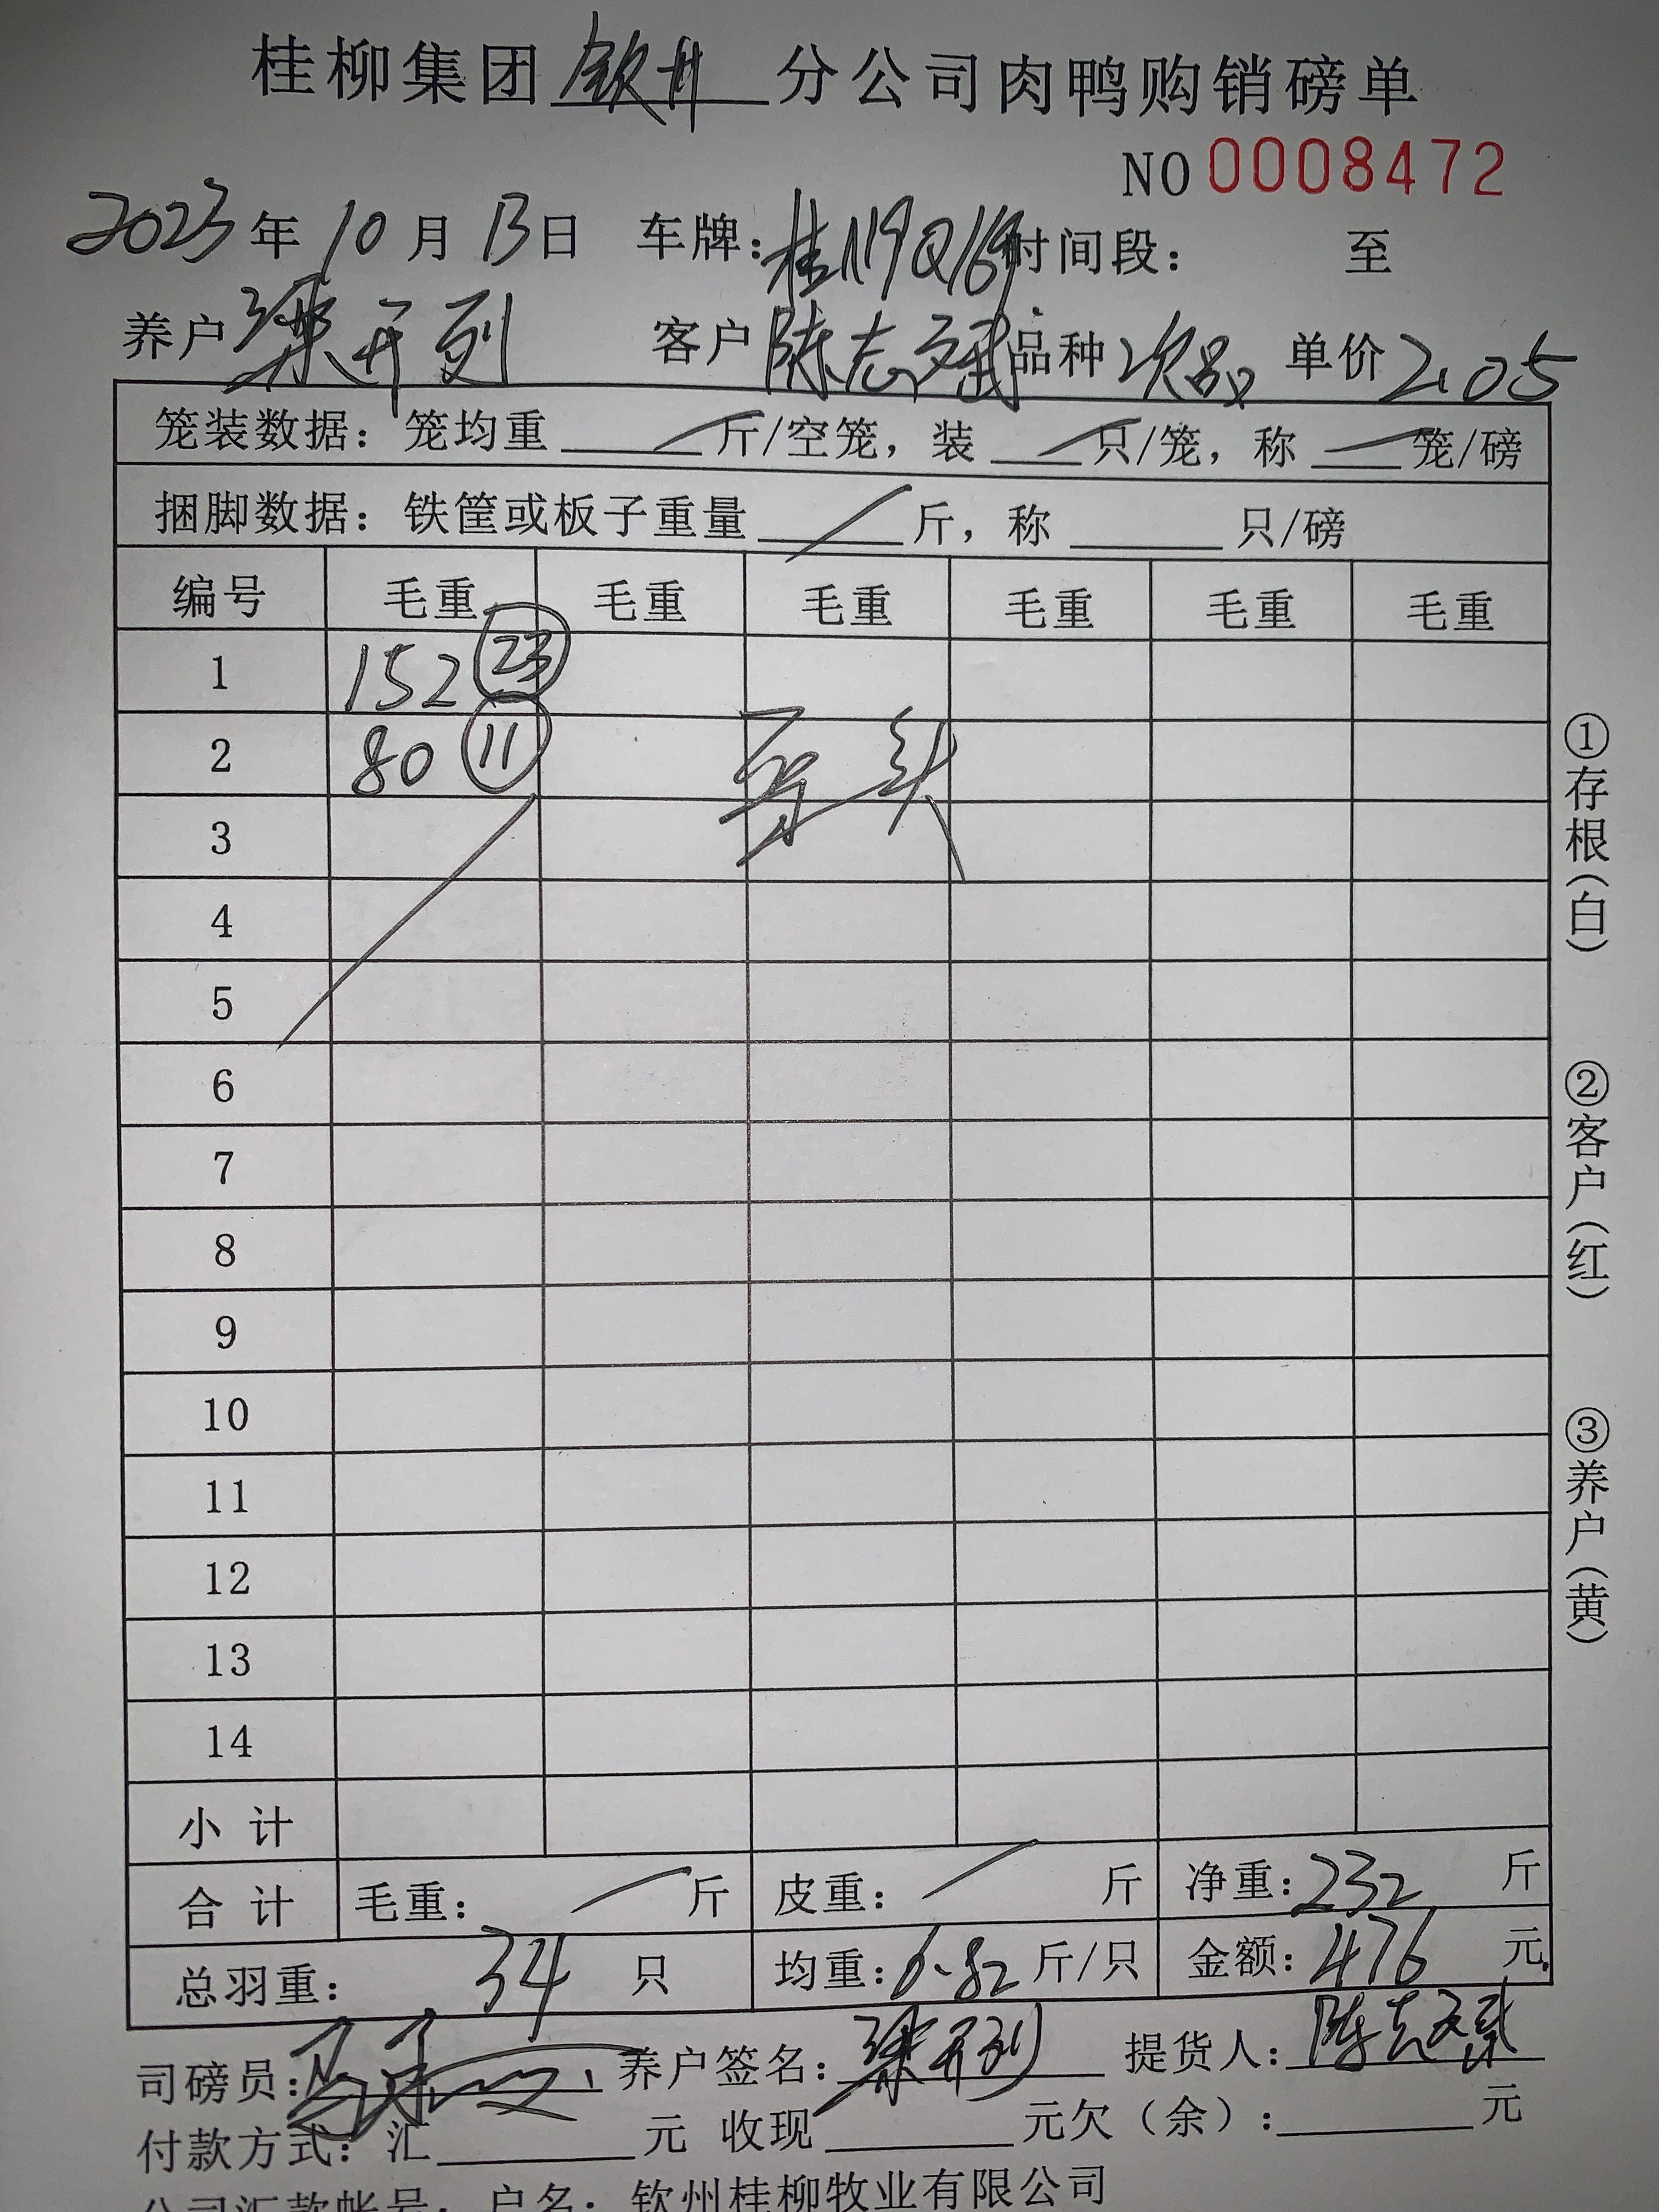 桂柳集团钦州分公司肉鸭购销磅单
NO 0008472
2023年10月13日 车牌:桂N9Q169 时间段: 至
养户 梁开列 客户 陈志斌 品种 次品 单价 2.05
笼装数据: 笼均重 斤/空笼, 装 只/笼, 称 笼/磅
捆脚数据: 铁筐或板子重量 斤, 称 只/磅
编号 毛重 毛重 毛重 毛重 毛重 毛重
1 152 23
2 80 11
3
4
5
6
7
8
9
10
11
12
13
14
小计
合计 毛重: 斤 皮重: 斤 净重:232 斤
总羽重: 34 只 均重:6.82 斤/只 金额:476 元
司磅员: 养户签名:梁开列 提货人:陈志斌
付款方式: 汇 元 收现 元欠(余): 元
公司汇款帐号: 户名: 钦州桂柳牧业有限公司
①存根(白)
②客户(红)
③养户(黄)